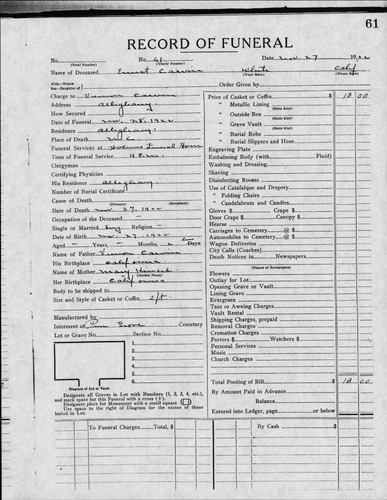 61
RECORD OF FUNERAL
No. No. 61 Date Nov. 27 1922
(Total Number) (Yearly Number)
Name of Deceased Ernest Carson White Calif
(What Race) (Where Born)
Wife-Widow
Son-Daughter of Order Given by
Charge to Vernon Carson
Address Alleghany
How Secured
Date of Funeral Nov. 28. 1922
Residence Alleghany
Place of Death
Funeral Services at Funeral Home
Time of Funeral Service
Clergyman
Certifying Physician
His Residence Alleghany
Number of Burial Certificate
Cause of Death
(Primary) (Secondary)
Date of Death Nov 27, 1922
Occupation of the Deceased
Single or Married Sing Religion
Date of Birth Nov. 27. 1922
Aged Years, Months, Days
Name of Father Vernon Carson
His Birthplace California
Name of Mother Mary
(Maiden Name)
Her Birthplace California
Body to be shipped to
Size and Style of Casket or Coffin 2 ft
Manufactured by
Interment at Pine Grove Cemetery
Lot or Grave No. Section No.
1.
2.
3.
4.
5.
6.
Diagram of Lot or Vault
Designate all Graves in Lot with Numbers (1, 2, 3, 4, etc.), and mark space for this Funeral with a cross (+).
Designate place for Monument with a small square
Use space to right of Diagram for the names of those buried in Lot.
Price of Casket or Coffin $ 18 00
" Metallic Lining
(State Kind)
" Outside Box
(State Kind)
" Grave Vault
(State Kind)
" Burial Robe
(State Kind)
" Burial Slippers and Hose
Engraving Plate
Embalming Body (with Fluid)
Washing and Dressing
Shaving
Disinfecting Rooms
Use of Catafalque and Drapery
" Folding Chairs
" Candelabrum and Candles
Gloves $ Crape $
Door Crape $ Canopy $
Hearse
Carriages to Cemetery @ $
Automobiles to Cemetery @ $
Wagon Deliveries
City Calls (Coaches)
Death Notices in Newspapers
(Names of Newspapers)
Flowers
Outlay for Lot
Opening Grave or Vault
Lining Grave
Evergreen
Tent or Awning Charges
Vault Rental
Shipping Charges, prepaid
Removal Charges
Cremation Charges
Porters $ Watchers $
Personal Services
Music
Church Charges
Total Footing of Bill $ 18 00
By Amount Paid in Advance
Balance
Entered into Ledger, page or below
To Funeral Charges Total, $ By Cash $